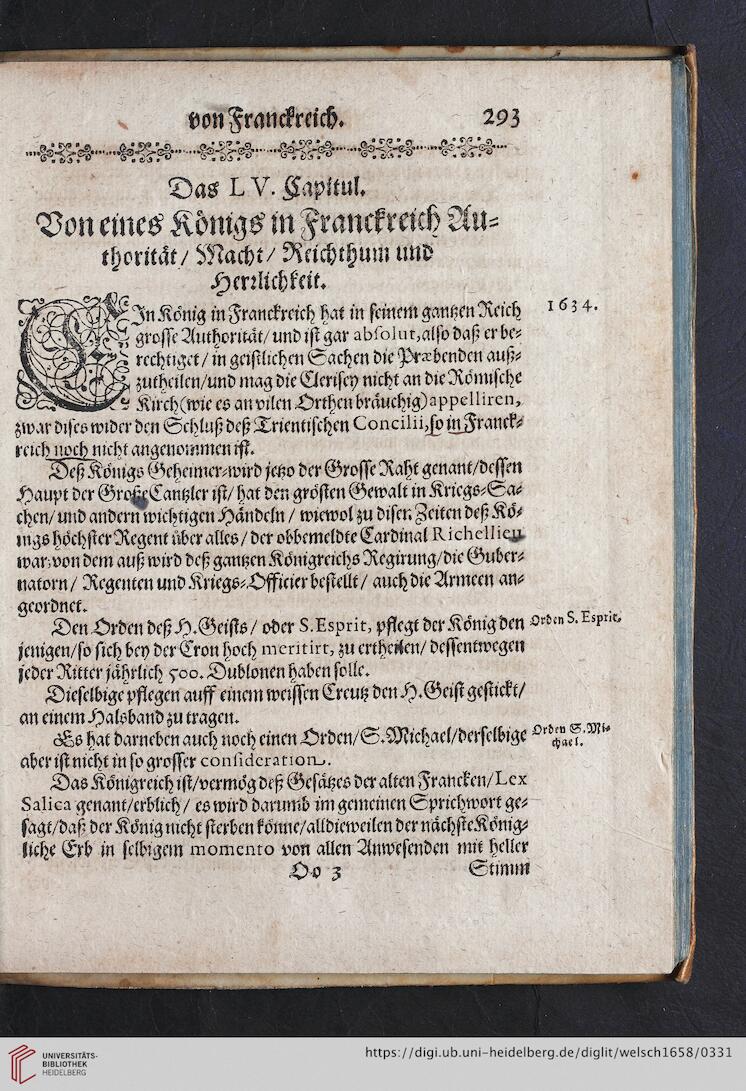 von Franckreich. 293
Das LV. Capitul.
Von eines Königs in Franckreich Au-
thorität / Macht / Reichthum und
Herrlichkeit.
EIn König in Franckreich hat in seinem gantzen Reich
1634.
grosse Authorität / und ist gar absolut, also daß er be-
rechtiget / in geistlichen Sachen die Præbenden auß-
zutheilen / und mag die Clerisey nicht an die Römische
Kirch (wie es an vilen Orthen bräuchig) appelliren,
zwar dises wider den Schluß deß Trientischen Concilii, so in Franck-
reich noch nicht angenommen ist.
Deß Königs Geheimer- wird jetzo der Grosse Raht genant / dessen
Haupt der Große Cantzler ist / hat den grösten Gewalt in Kriegs-Sa-
chen / und andern wichtigen Händeln / wiewol zu diser Zeiten deß Kö-
nigs höchster Regent über alles / der obbemeldte Cardinal Richellieu
war; von dem auß wird deß gantzen Königreichs Regirung / die Guber-
natorn / Regenten und Kriegs-Officier bestellt / auch die Armeen an-
geordnet.
Den Orden deß H. Geists / oder S. Esprit, pflegt der König den
Orden S. Esprit.
jenigen / so sich bey der Cron hoch meritirt, zu ertheilen / dessentwegen
jeder Ritter jährlich 500. Dublonen haben solle.
Dieselbige pflegen auff einem weissen Creutz den H. Geist gestickt /
an einem Halsband zu tragen.
Es hat darneben auch noch einen Orden / S. Michael / derselbige
Orden S. Mi-
chael.
aber ist nicht in so grosser consideration.
Das Königreich ist / vermög deß Gesätzes der alten Francken / Lex
Salica genant / erblich / es wird darumb im gemeinen Sprichwort ge-
sagt / daß der König nicht sterben könne / alldieweilen der nächste König-
liche Erb in selbigem momento von allen Anwesenden mit heller
Oo 3 Stimm
UNIVERSITÄTS-
BIBLIOTHEK
HEIDELBERG
https://digi.ub.uni-heidelberg.de/diglit/welsch1658/0331